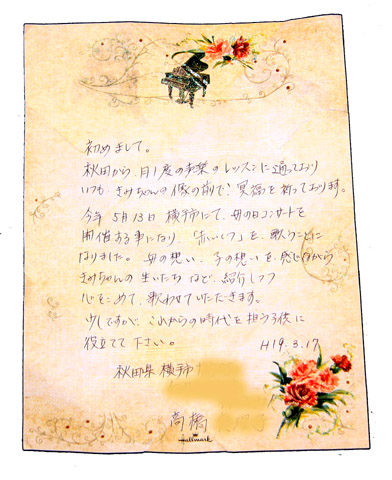 初めまして。
秋田から、月1度の声楽のレッスンに通っており
いつも、きみちゃんの像の前で、冥福を祈っております。
今年5月13日 横手にて、母の日コンサートを
開催する事になり、「赤いくつ」を、歌うことに
なりました。母の想い、子の想いを、感じながら
きみちゃんの生いたちなど、紹介しつつ
心をこめて、歌わせていただきます。
少しですが、これからの時代を担う子供に
役立てて下さい。
H19.3.17
秋田県横手市
高橋
Hallmark